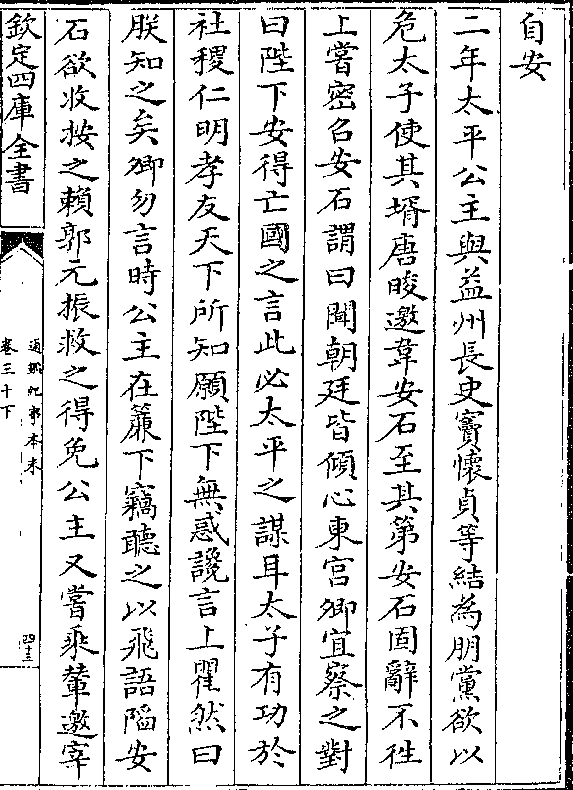 自安
二年太平公主與益州長史竇懷貞等結為朋黨欲以
危太子使其壻唐晙邀韋安石至其第安石固辭不往
上嘗密召安石謂曰聞朝廷皆傾心東宮卿宜察之對
曰陛下安得亡國之言此必太平之謀耳太子有功於
社稷仁明孝友天下所知願陛下無惑讒言上瞿然曰
朕知之矣卿勿言時公主在簾下竊聽之以飛語陷安
石欲收按之賴郭元振救之得免公主又嘗乘輦邀宰
欽定四庫全書
通鑑紀事本末
卷三十下
四十三